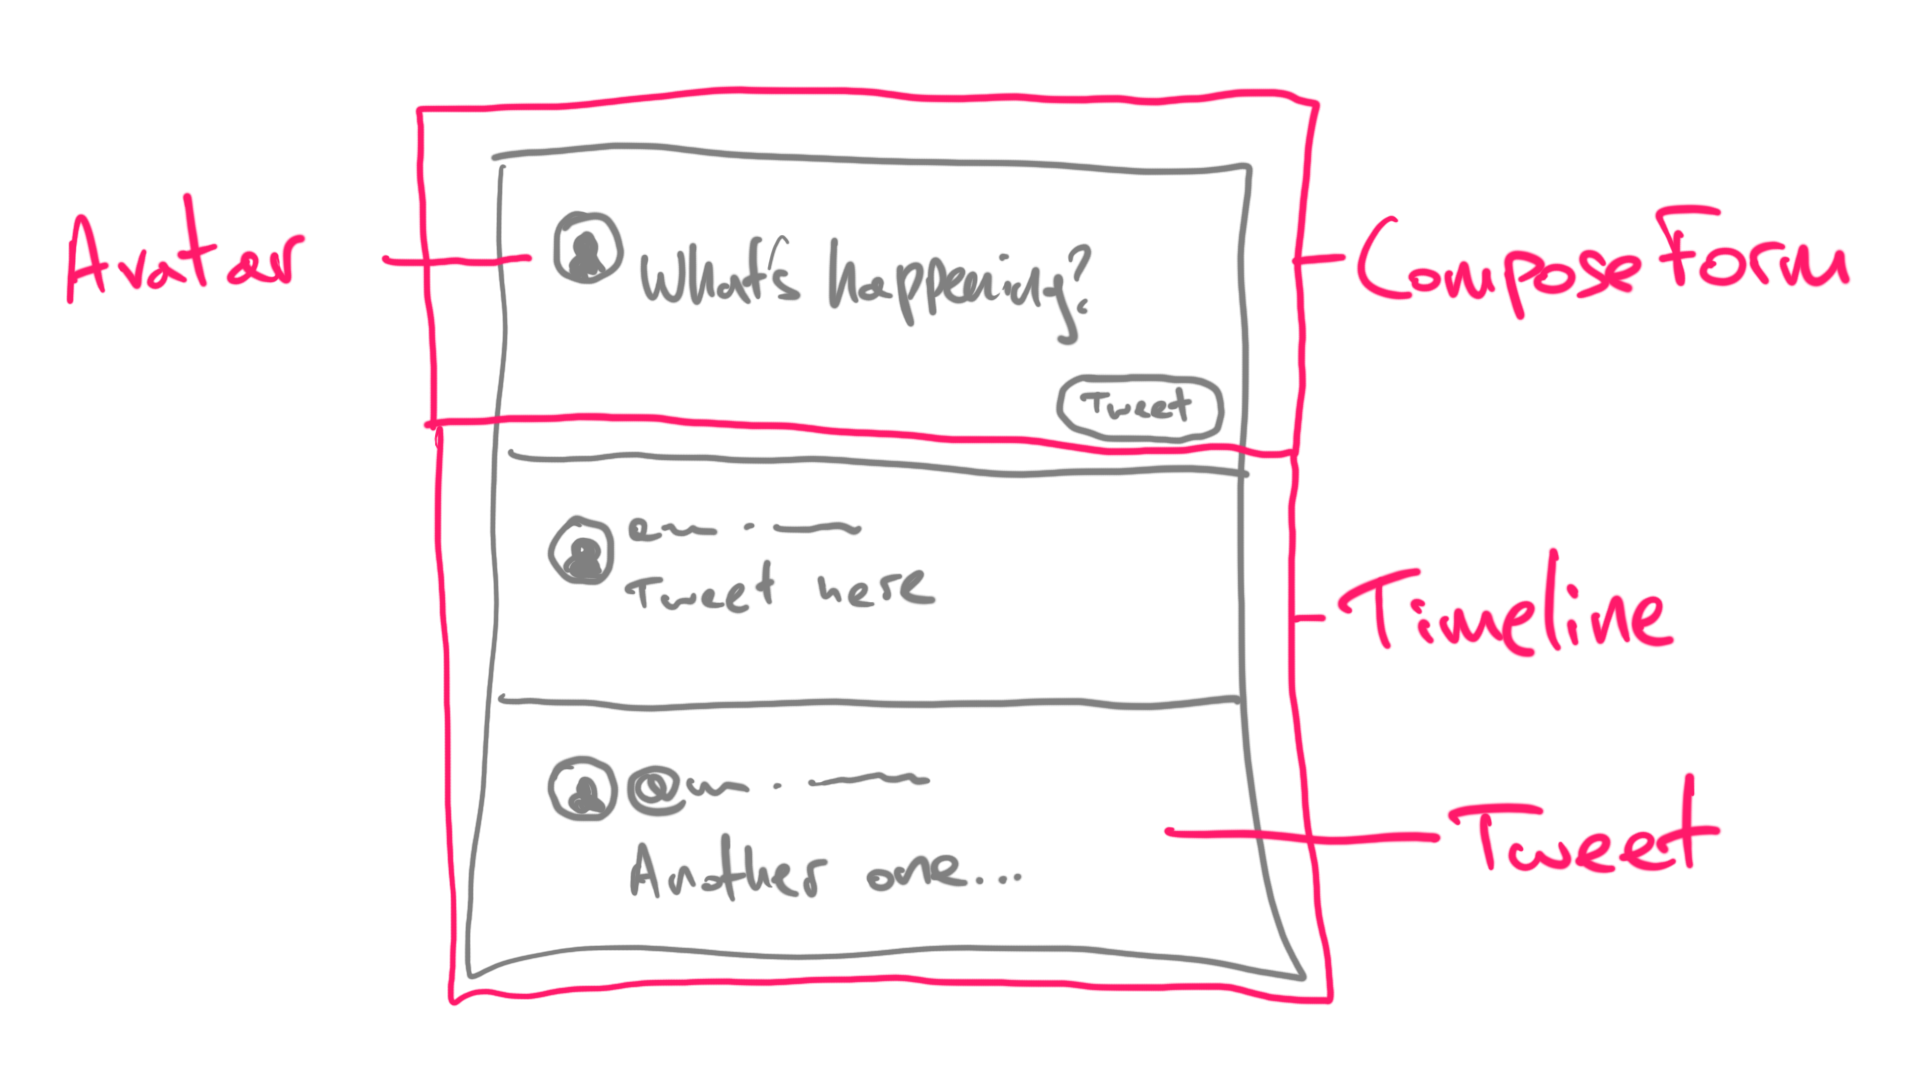 Avatar
What's happening?
ComposeForm
Tweet
Tweet here
Timeline
@
Another one...
Tweet